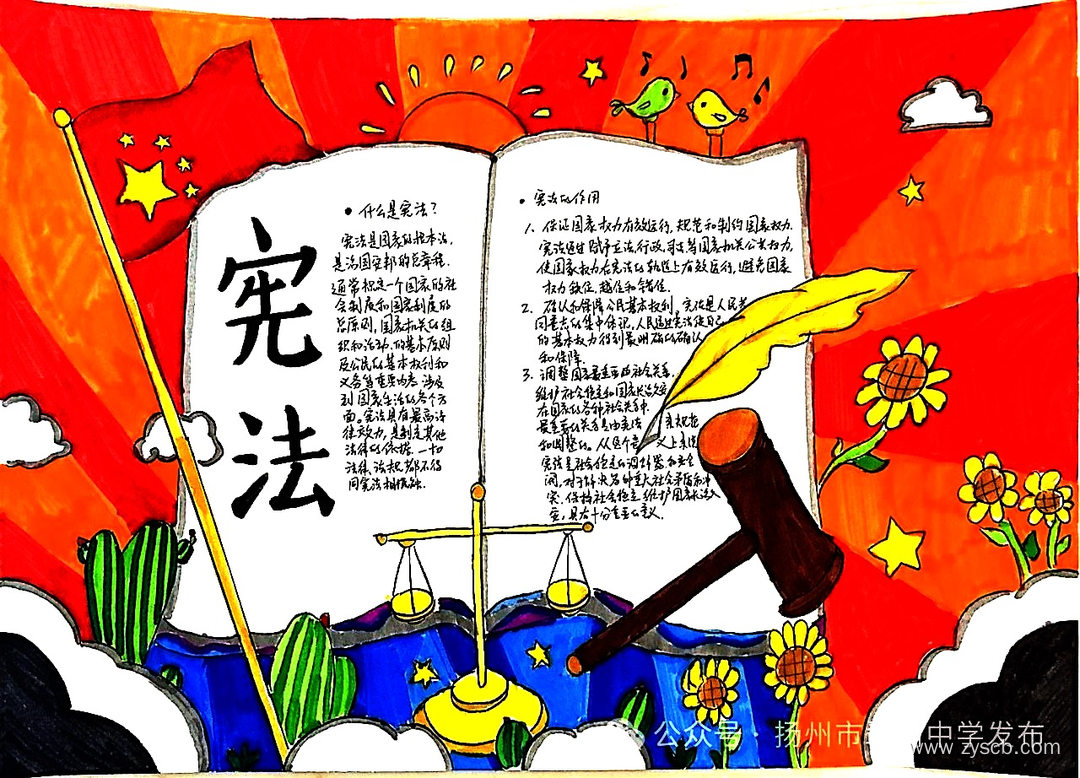 宪法
• 什么是宪法？
宪法是国家的根本法，
是治国安邦的总章程，
通常规定一个国家的社
会制度和国家制度的
总原则，国家机关的组
织和活动的基本原则
及公民的基本权利和
义务等重要内容，涉及
到国家生活的各个方
面。宪法具有最高法
律效力，是制定其他
法律的依据，一切
法律、法规都不得
同宪法相抵触。
• 宪法的作用
1、保证国家权力有效运行，规范和制约国家权力.
宪法通过赋予立法、行政、司法等国家机关公共权力，
使国家权力在宪法的轨道上有效运行，避免国家
权力缺位、越位和错位.
2、确认和保障公民基本权利。宪法是人民共
同意志的集中体现，人民通过宪法使自己
的基本权力得到最明确的确认
和保障.
3、调整国家最重要的社会关系，
维护社会稳定和国家长治久安
在国家的各种社会关系中
最重要的关系是由宪法
来规范
和调整的。从这个意
义上来说
宪法是社会稳定的调节器和安全
阀，对于解决各种重大社会矛盾和冲
突，保持社会稳定，维护国家长治久
安，具有十分重要的意义.
公众号·扬州市 中学发布
www.zyscb.com